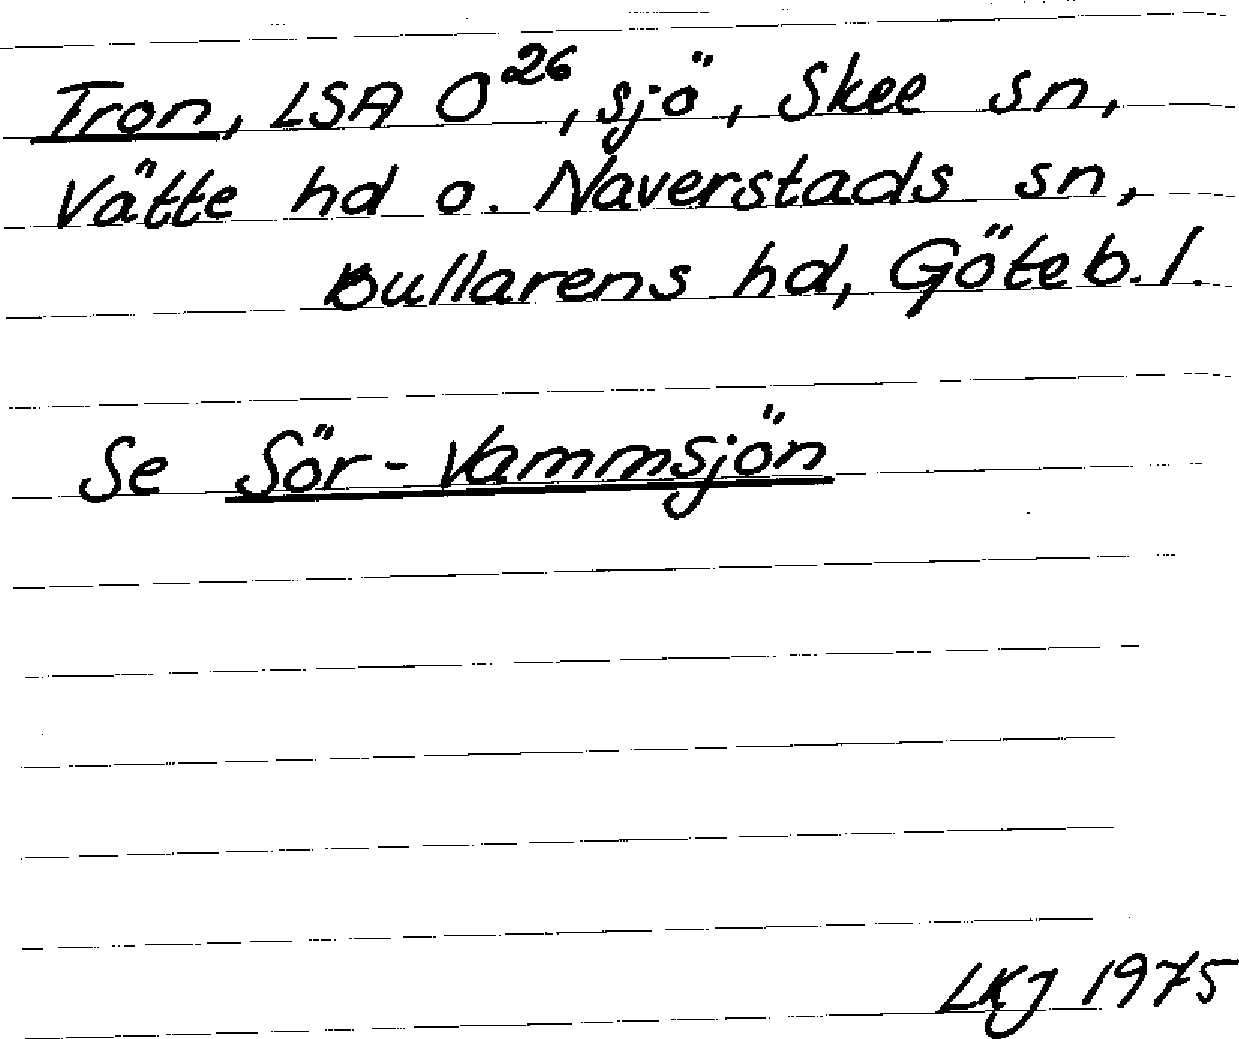 Tron, LSA O²⁶, sjö, Skee sn,
Vätte hd o. Naverstads sn,
Bullarens hd, Göteb. l.
Se Sör-Vammsjön
LKJ 1975